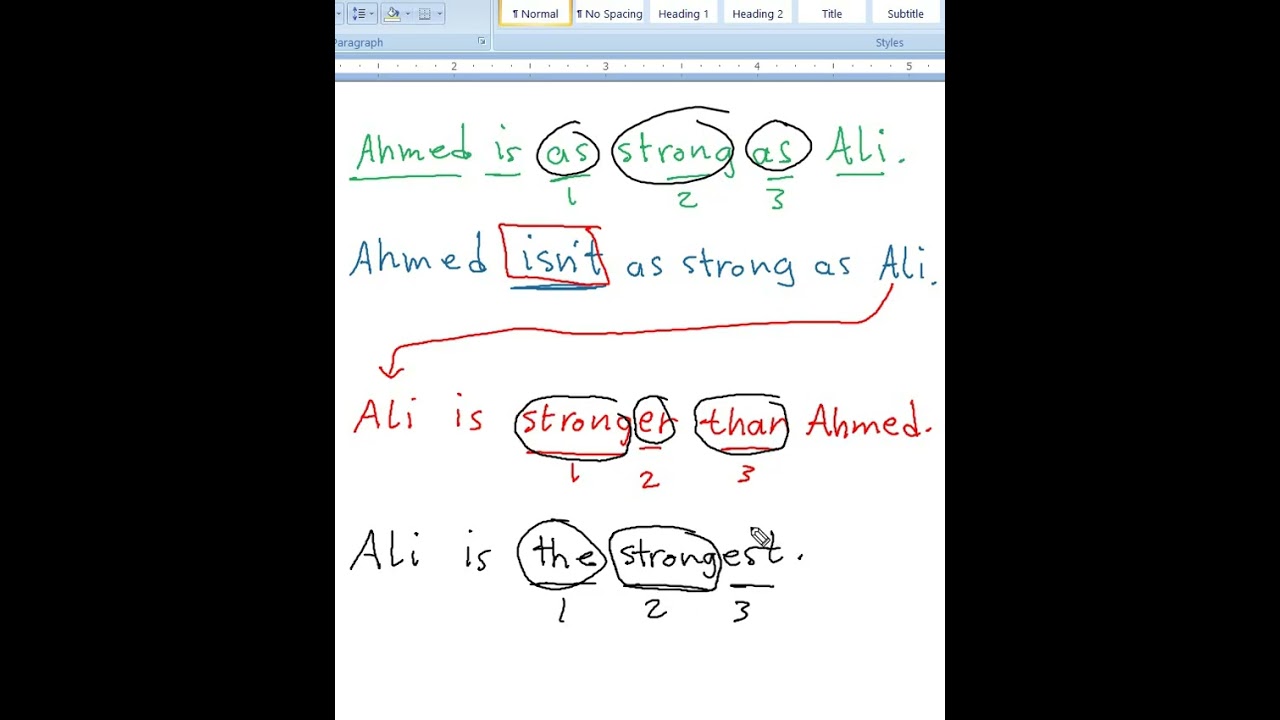 ¶ Normal ¶ No Spacing Heading 1 Heading 2 Title Subtitle
Paragraph Styles
2 3 4 5
Ahmed is as strong as Ali.
1 2 3
Ahmed isn't as strong as Ali.
Ali is stronger than Ahmed.
1 2 3
Ali is the strongest.
1 2 3